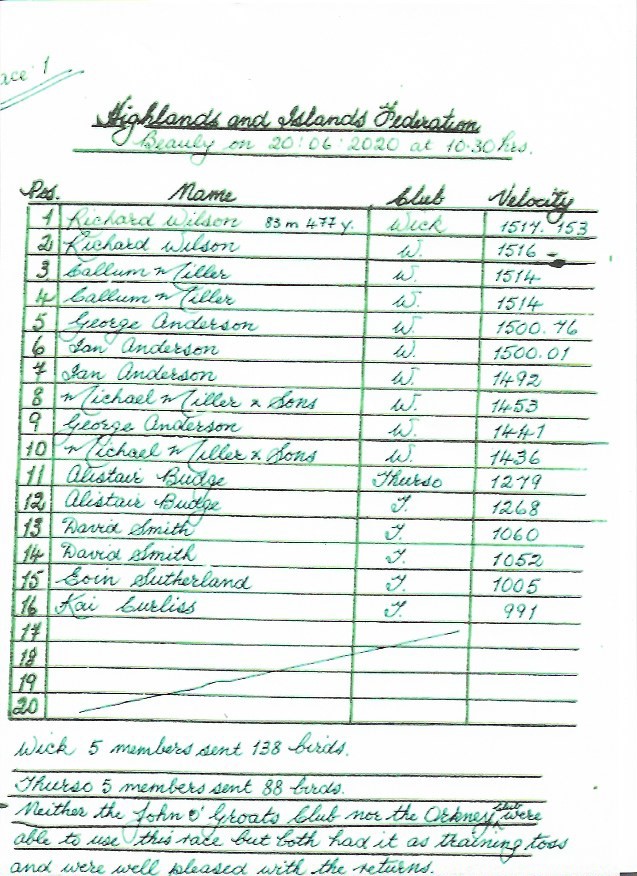 ace 1
Highlands and Islands Federation
Beauly on 20:06:2020 at 10.30 hrs.
Pos. Name Club Velocity
1 Richard Wilson 83 m 477 y. Wick 1517.153
2 Richard Wilson W. 1516
3 Callum Miller W. 1514
4 Callum Miller W. 1514
5 George Anderson W. 1500.76
6 Ian Anderson W. 1500.01
7 Ian Anderson W. 1492
8 Michael Miller & Sons W. 1453
9 George Anderson W. 1441
10 Michael Miller & Sons W. 1436
11 Alistair Budge Thurso 1279
12 Alistair Budge T. 1268
13 David Smith T. 1060
14 David Smith T. 1052
15 Eoin Sutherland T. 1005
16 Kai Curliss T. 991
17
18
19
20
Wick 5 members sent 138 birds.
Thurso 5 members sent 88 birds.
Neither the John O' Groats Club nor the Orkney club were
able to use this race but both had it as training toss
and were well pleased with the returns.